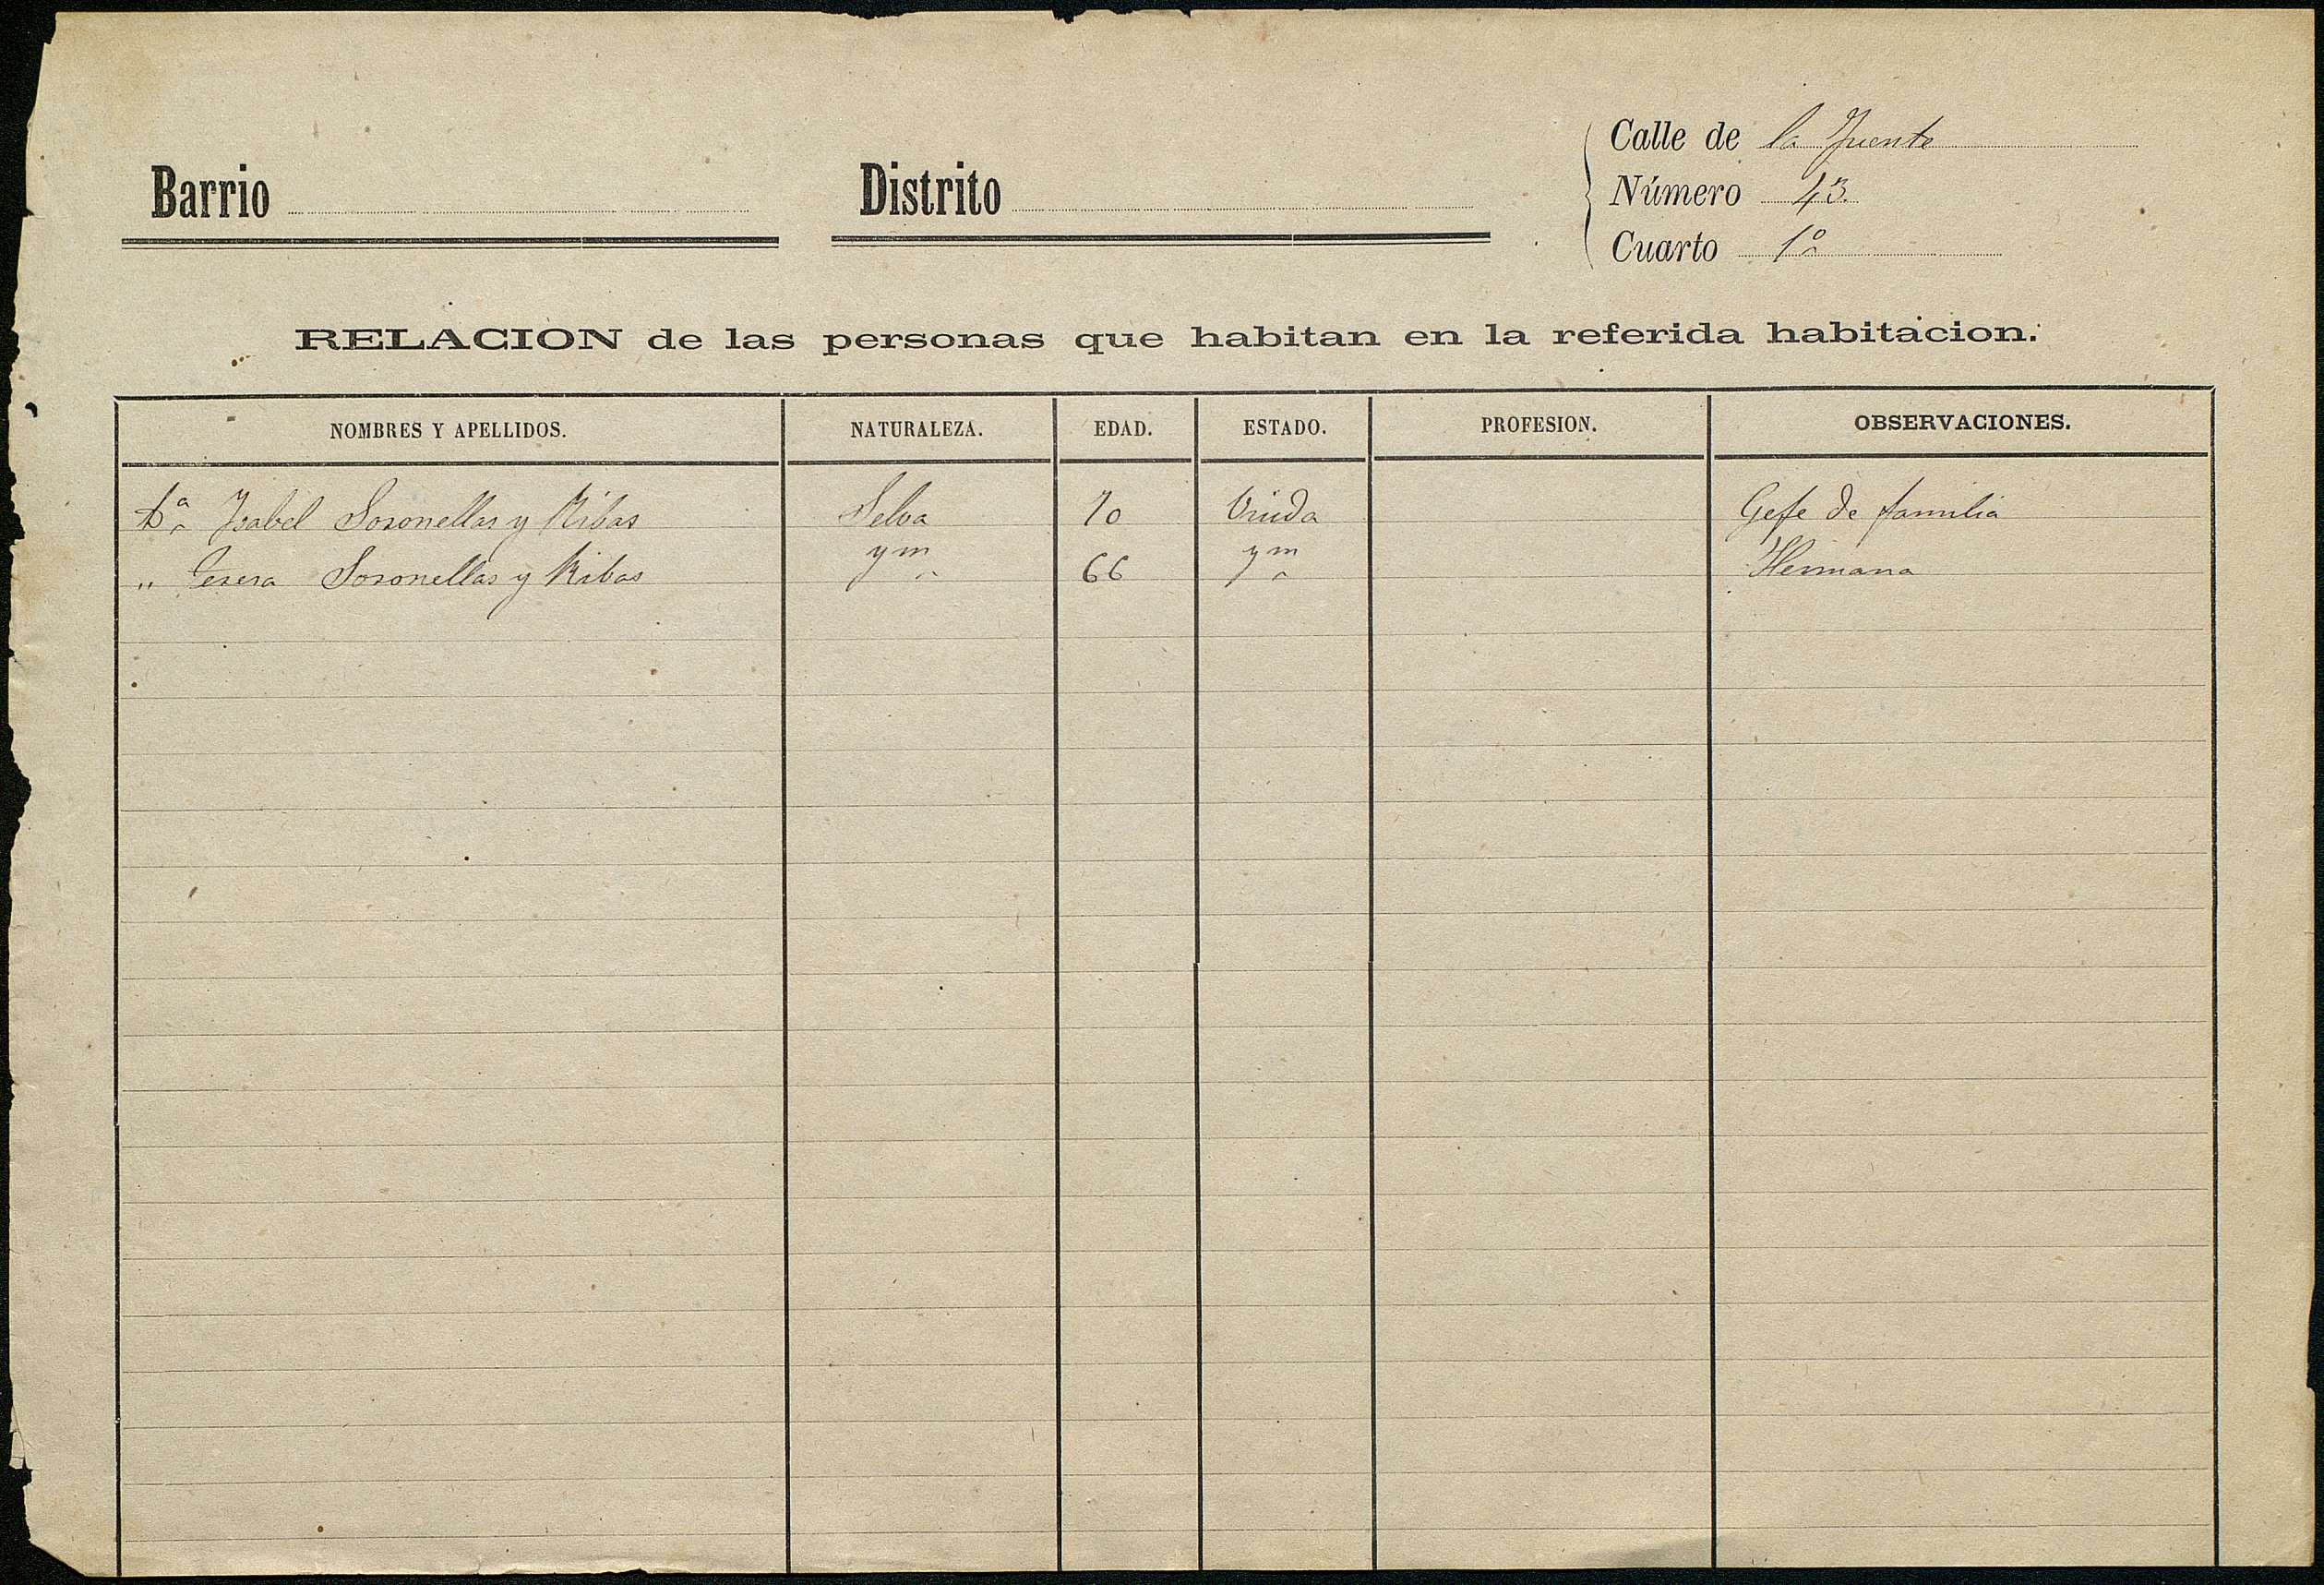 Calle de la Fuente
Barrio Distrito Número 43.
Cuarto 1º
RELACION de las personas que habitan en la referida habitacion.
NOMBRES Y APELLIDOS. NATURALEZA. EDAD. ESTADO. PROFESION. OBSERVACIONES.
Dª Isabel Soronellas y Ribas Selva 70 Viuda Gefe de familia
" Teresa Soronellas y Ribas ym 66 ym Hermana